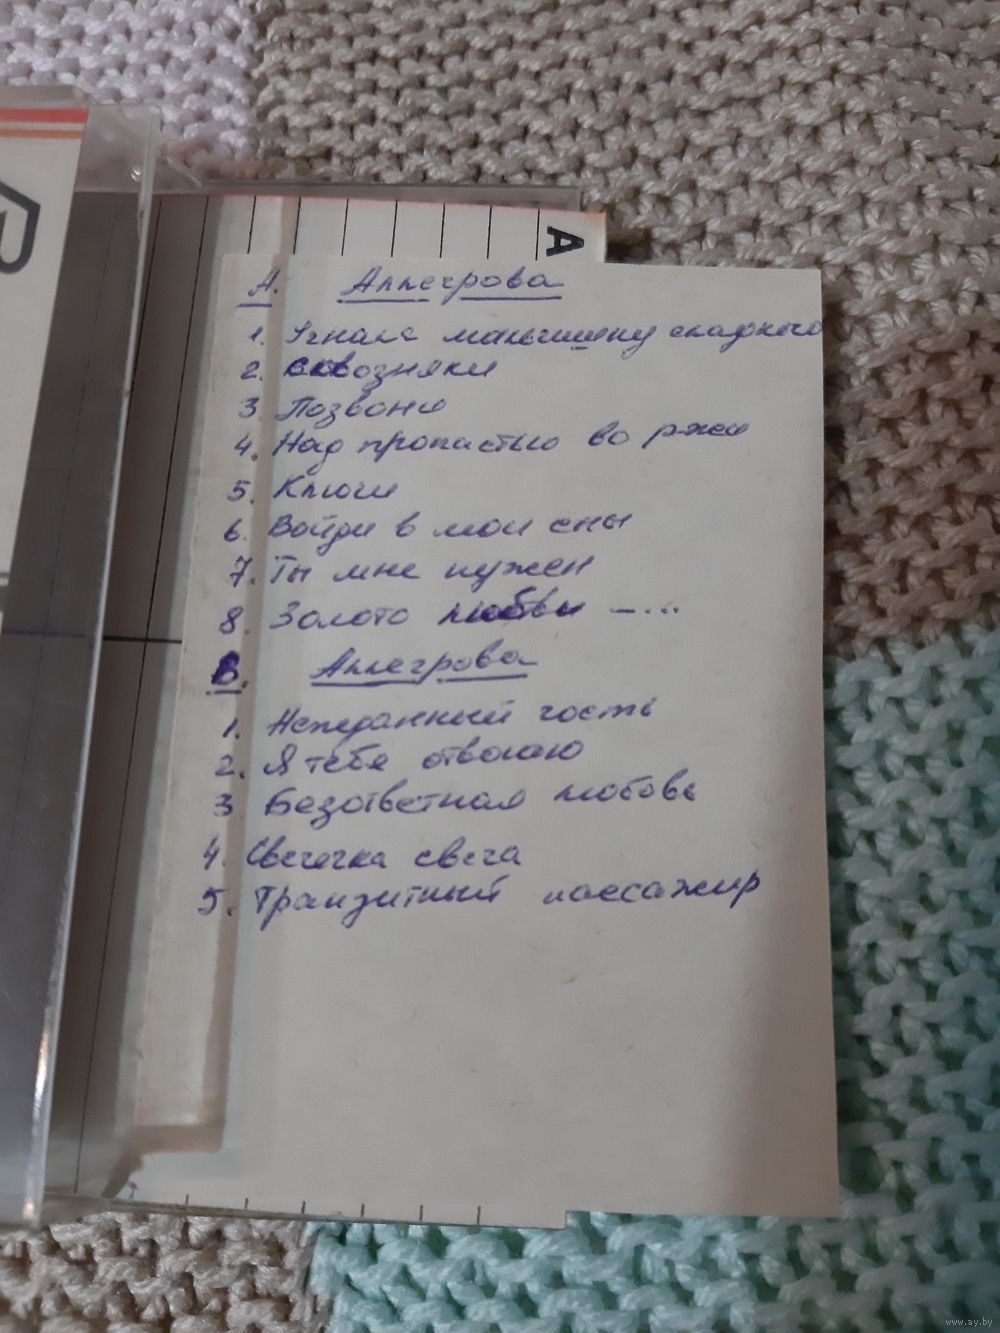 A
А. Аллегрова
1. Угнала мальчишку сладкого
2. сквозняки
3 Позвони
4. Над пропастью во ржи
5. Ключи
6. Войди в мои сны
7. Ты мне нужен
8. Золото любви –...
В. Аллегрова
1. Нежданный гость
2. Я тебя отвоюю
3 Безответная любовь
4. Свечечка свеча
5. Транзитный пассажир
www.ay.by